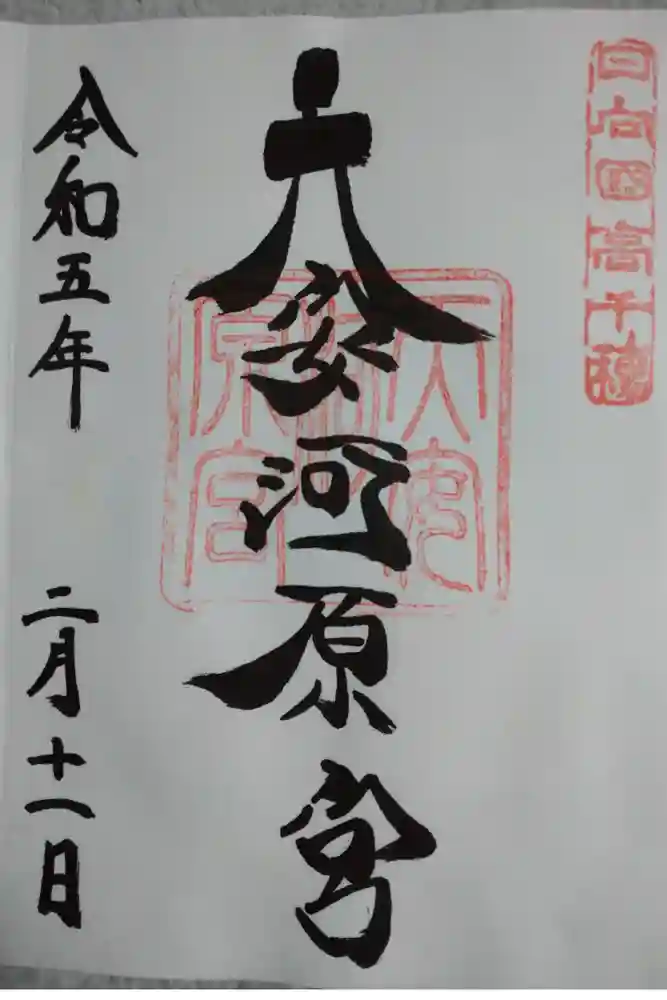 日向国高千穂
天安河原宮
天安河原宮
令和五年 二月十一日